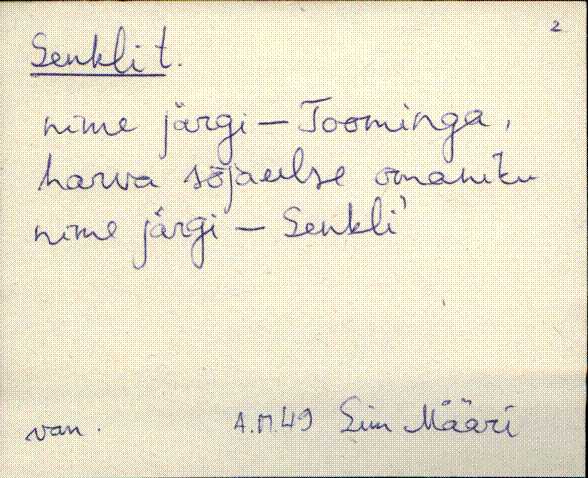 2
Senkli t.
nime järgi – Toominga,
harva sõjaeelse omaniku
nime järgi – Senkli'
van. A.M.49 Liin Määri